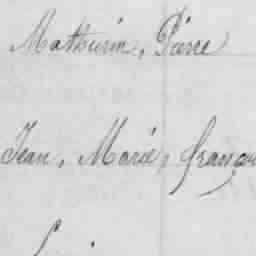 Mathurin, Pierre
Jean, Marie, françois